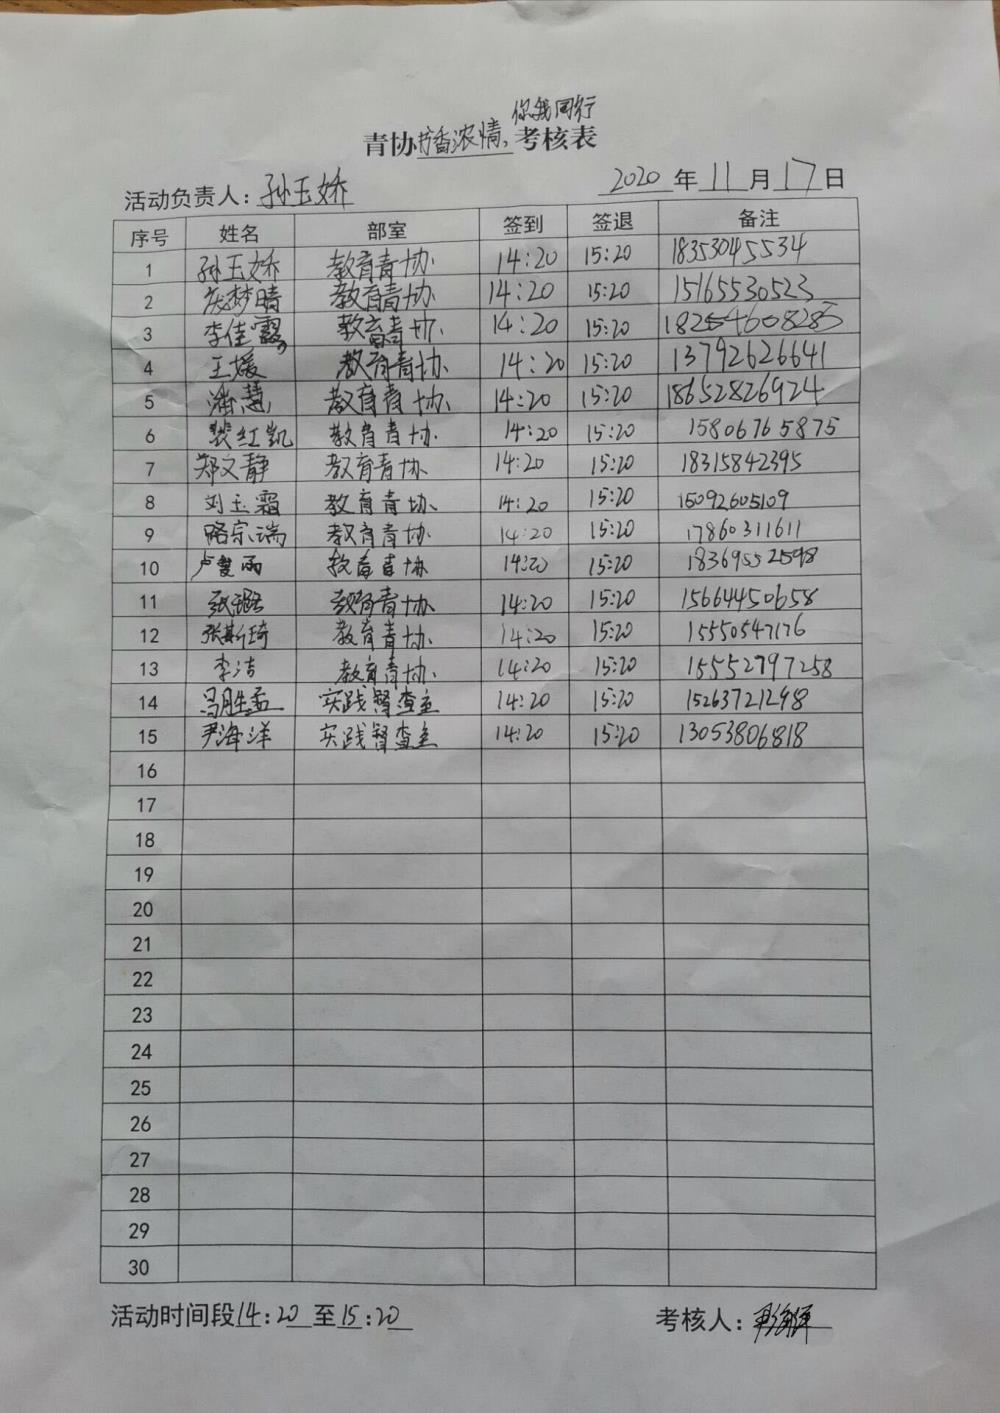 你我同行
青协书香浓情,考核表
活动负责人：孙玉娇 2020 年 11 月 17 日
序号 姓名 部室 签到 签退 备注
1 孙玉娇 教育青协 14:20 15:20 18353045534
2 庞梦晴 教育青协 14:20 15:20 15165530523
3 李佳霞 教育青协 14:20 15:20 18254608285
4 王媛 教育青协 14:20 15:20 13792626641
5 潘慧 教育青协 14:20 15:20 18652826924
6 裴红凯 教育青协 14:20 15:20 15806765875
7 郑文静 教育青协 14:20 15:20 18315842395
8 刘玉霜 教育青协 14:20 15:20 15092605109
9 骆宗瑞 教育青协 14:20 15:20 17860311611
10 卢雯雨 教育青协 14:20 15:20 18369552598
11 张璐 教育青协 14:20 15:20 15664450658
12 张斯琦 教育青协 14:20 15:20 15550547176
13 李洁 教育青协 14:20 15:20 15552797258
14 马胜孟 实践督查室 14:20 15:20 15263721298
15 尹海洋 实践督查室 14:20 15:20 13053806818
16
17
18
19
20
21
22
23
24
25
26
27
28
29
30
活动时间段14:20 至15:20 考核人：